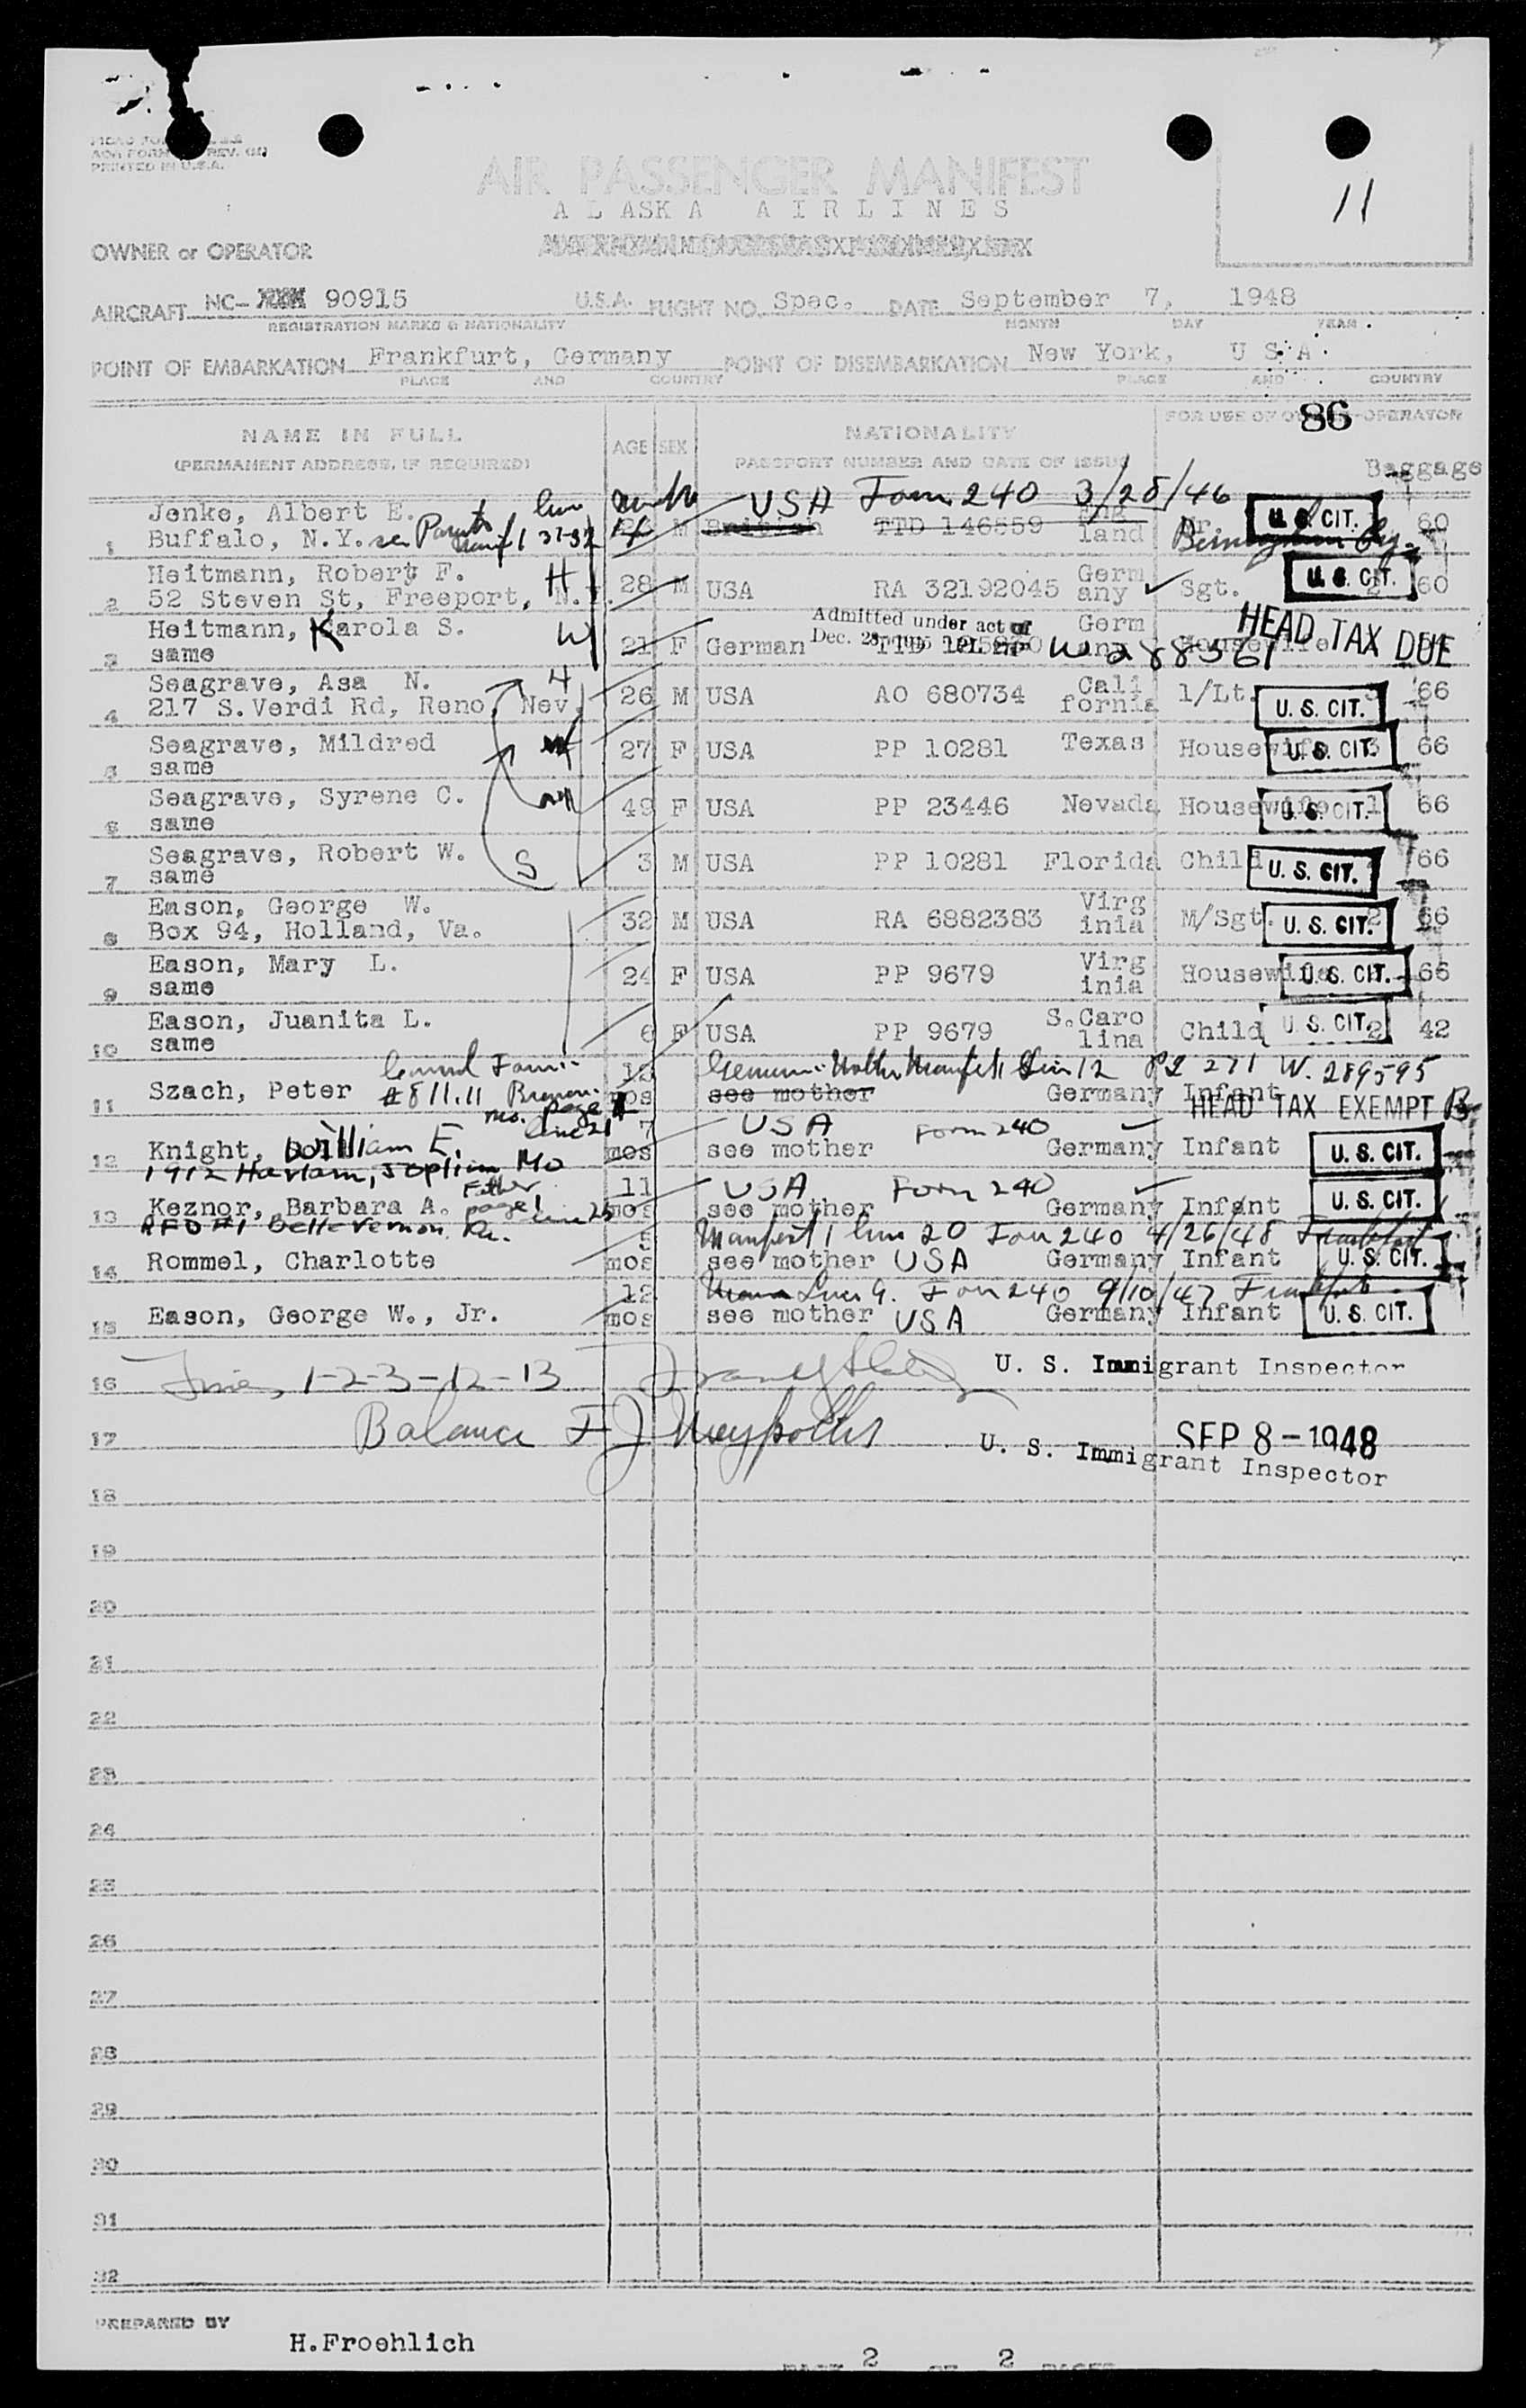 PRINTED IN U.S.A.
11
AIR PASSENGER MANIFEST
ALASKA AIRLINES
OWNER or OPERATOR
AIRCRAFT NC- 90915 U.S.A. FLIGHT NO. Spec. DATE September 7, 1948
REGISTRATION MARKS & NATIONALITY MONTH DAY YEAR
POINT OF EMBARKATION Frankfurt, Germany POINT OF DISEMBARKATION New York, U S A
PLACE AND COUNTRY PLACE AND COUNTRY
86
NAME IN FULL AGE SEX NATIONALITY FOR USE OF OPERATOR
(PERMANENT ADDRESS, IF REQUIRED) PASSPORT NUMBER AND DATE OF ISSUE Baggage
USA Form 240 3/28/46
Jenke, Albert E. Eng U.S. CIT.
1 Buffalo, N.Y. see Parents M British TTD 146559 land 60
Heitmann, Robert F. H Germ U.S. CIT.
2 52 Steven St, Freeport, N.Y. 28 M USA RA 32192045 any Sgt. 2 60
Heitmann, Karola S. W Admitted under act of Germ HEAD TAX DUE
3 same 21 F German Dec. 28 TTD W288561 Housewife
Seagrave, Asa N. H Cali
4 217 S.Verdi Rd, Reno, Nev. 26 M USA AO 680734 fornia 1/Lt. U.S. CIT. 3 66
Seagrave, Mildred
5 same 27 F USA PP 10281 Texas Housewife U.S. CIT. 3 66
Seagrave, Syrene C.
6 same 49 F USA PP 23446 Nevada Housewife U.S. CIT. 1 66
Seagrave, Robert W. S
7 same 3 M USA PP 10281 Florida Child U.S. CIT. 66
Eason, George W. Virg
8 Box 94, Holland, Va. 32 M USA RA 6882383 inia M/Sgt. U.S. CIT. 2 66
Eason, Mary L. Virg
9 same 24 F USA PP 9679 inia Housewife U.S. CIT. 66
Eason, Juanita L. S.Caro
10 same 6 F USA PP 9679 lina Child U.S. CIT. 2 42
12 German Mother Manifest Line 12 PL 271 W. 289595
11 Szach, Peter #811.11 mos see mother Germany Infant
mo. page 1 HEAD TAX EXEMPT
line 21 7 USA Form 240
12 Knight, William E. mos see mother Germany Infant U.S. CIT.
1912 Harlam, Joplin Mo
Father 11 USA Form 240
13 Keznor, Barbara A. page 1 line 25 mos see mother Germany Infant U.S. CIT.
RFD #1 Belle Vernon Pa.
5 Manifest 1 line 20 Form 240 4/26/48 Frankfurt
14 Rommel, Charlotte mos see mother USA Germany Infant U.S. CIT.
12 Line 9. Form 240 9/10/47 Frankfurt
15 Eason, George W., Jr. mos see mother USA Germany Infant U.S. CIT.
16 Lines, 1-2-3-12-13 U. S. Immigrant Inspector
17 Balance SEP 8-1948
U. S. Immigrant Inspector
18
19
20
21
22
23
24
25
26
27
28
29
30
31
32
PREPARED BY
H.Froehlich
PAGE 2 OF 2 PAGES